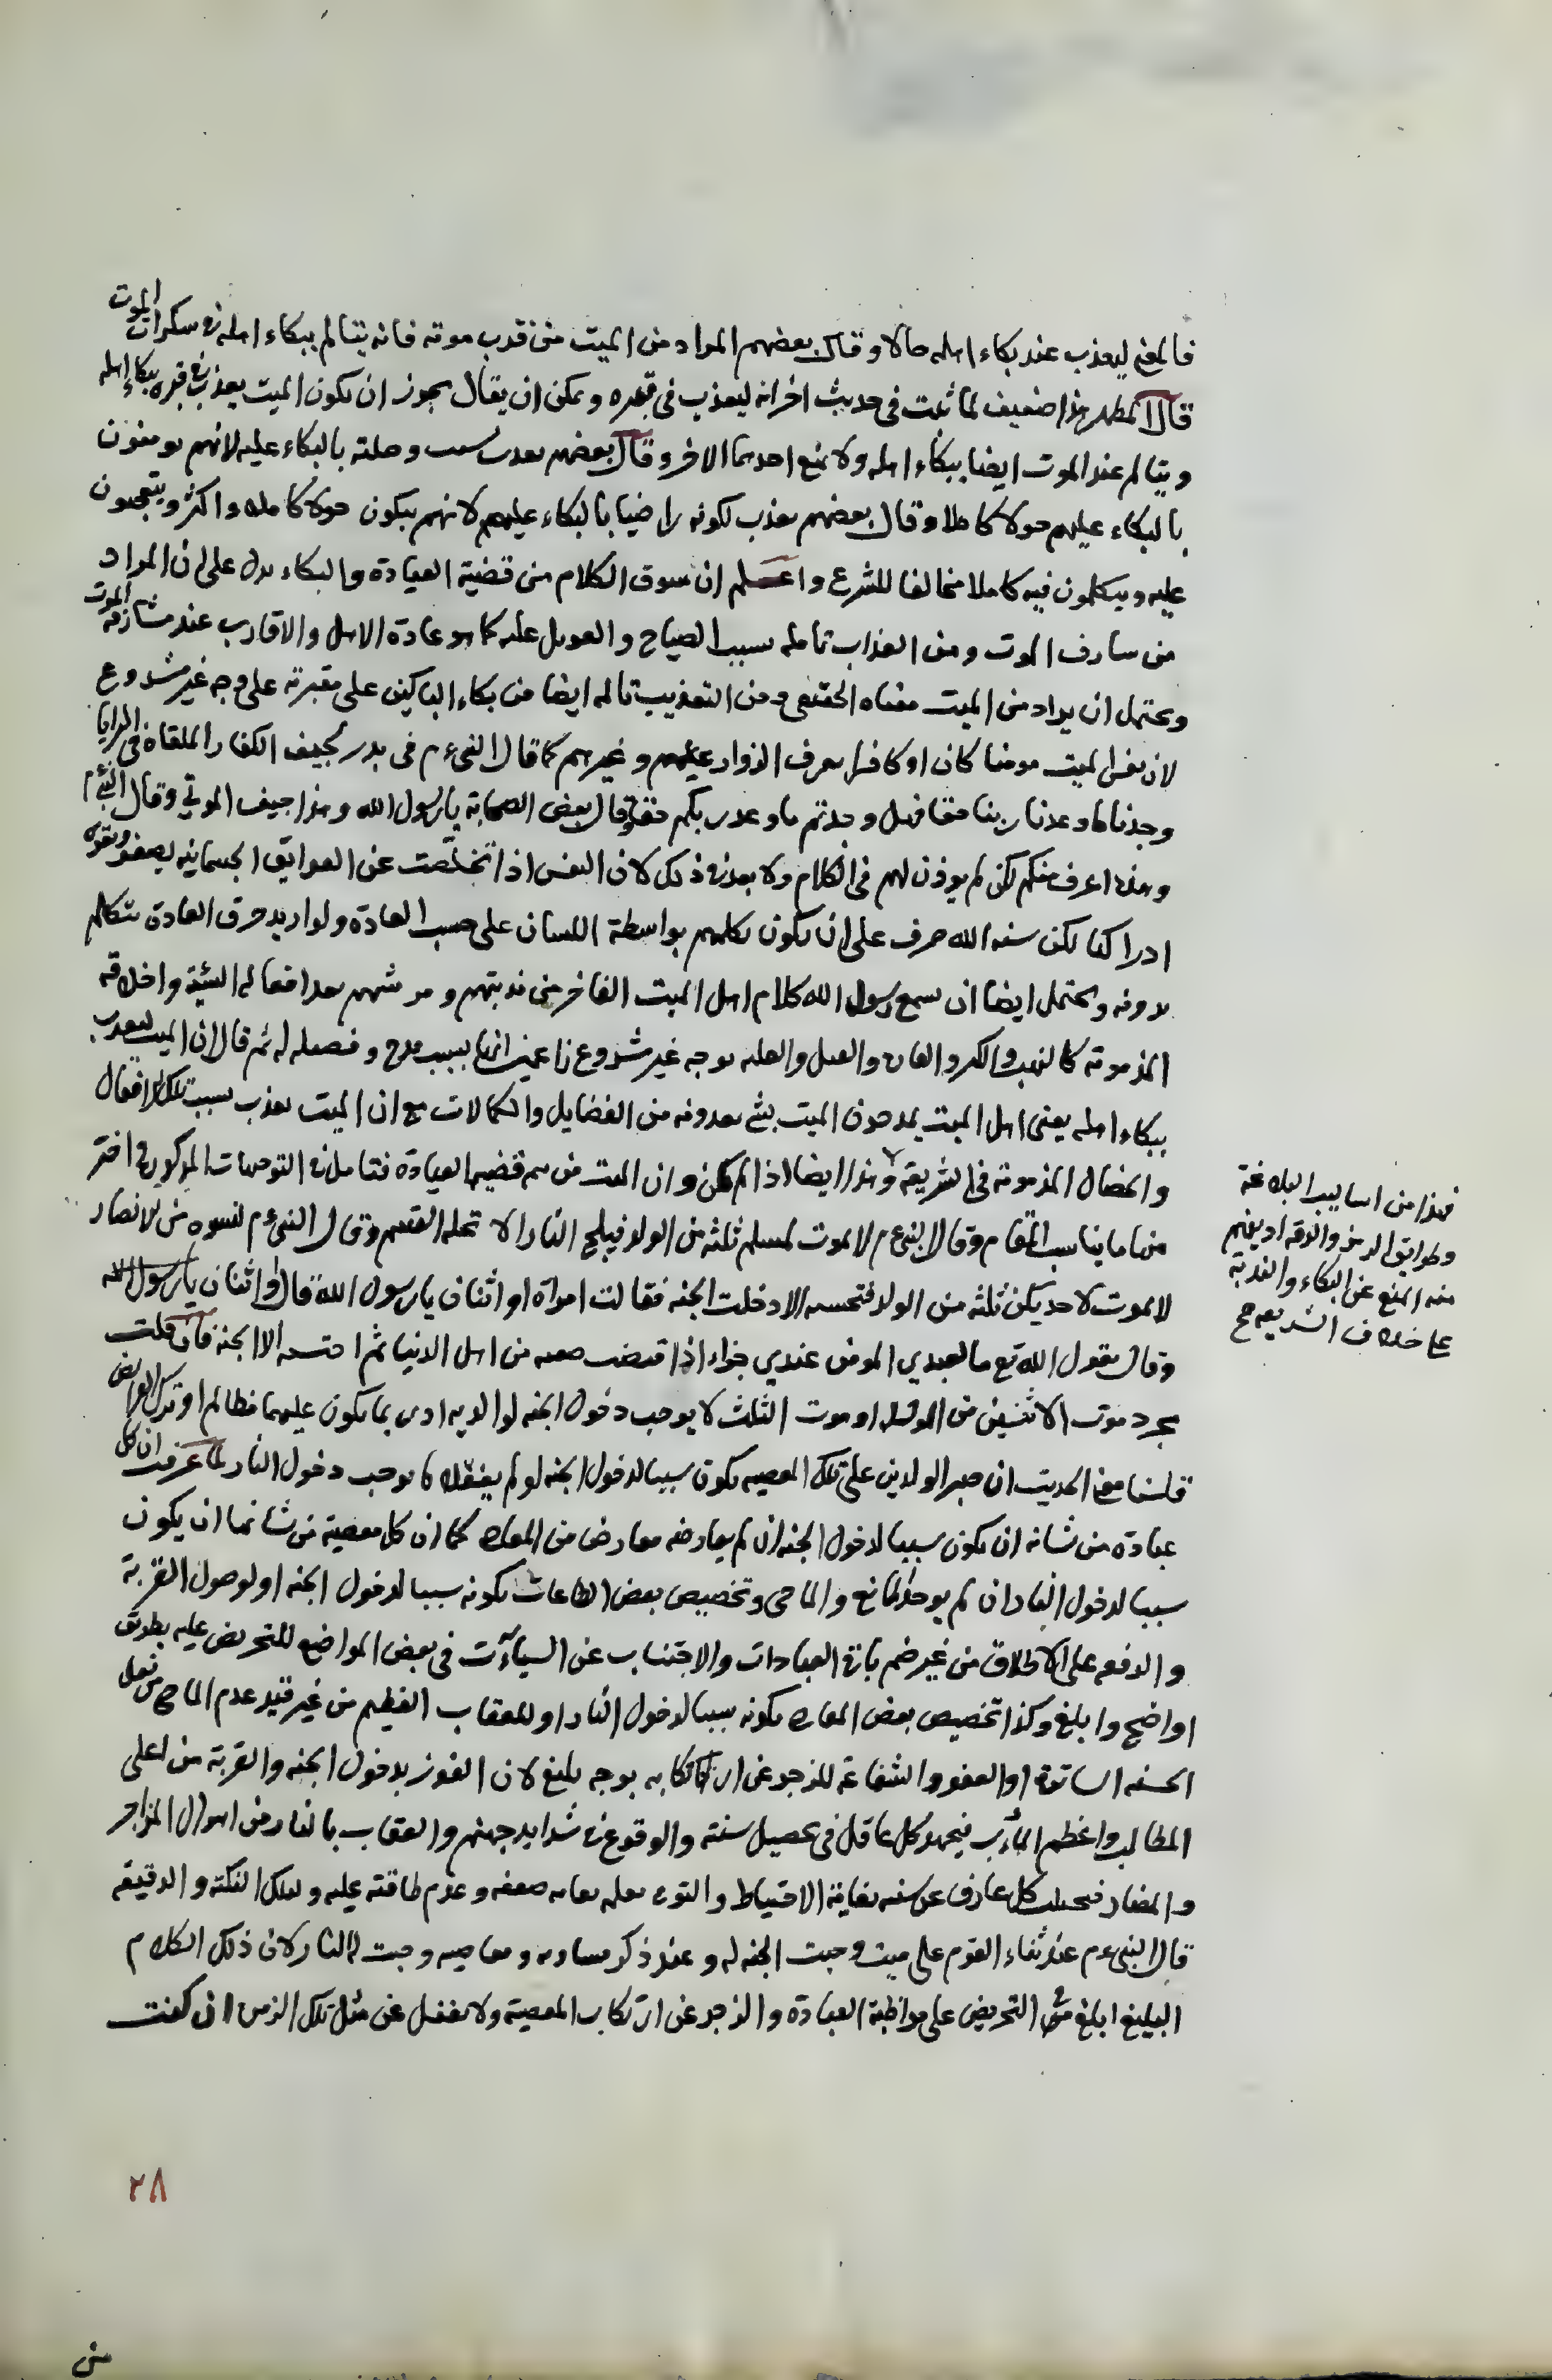 فالمعنى ليعذب عند بكاء اهله حالا وقال بعضهم المراد من الميت من قرب موته فانه يتالم ببكاء اهله في سكرات الموت
قال المظهر هذا ضعيف لما ثبت في حديث اخر انه ليعذب في قبره ويمكن ان يقال يجوز ان يكون الميت يعذب في قبره ببكاء اهله
ويتالم عند الموت ايضا ببكاء اهله ولا يمنع احدهما الاخر وقال بعضهم يعذب بسبب وصلته بالبكاء عليه لانهم يوصون
بالبكاء عليهم حولا كاملا وقال بعضهم يعذب لكونه راضيا بالبكاء عليهم لانهم يبكون حولا كامله واكثر ويتجمعون
عليه ويتكلمون فيه كاملا مخالفا للشرع واعلم ان سوق الكلام من قضية العيادة والبكاء يدل على ان المراد
من الموت ومن العذاب تالمه بسبب الصياح والعويل عليه كما هو عادة الاهل والاقارب عند مشارفة الموت
ويحتمل ان يراد من الميت معناه الحقيقي ومن التعذيب تالمه ايضا من بكاء الباكين على مقبرته على وجه غير مشروع
لان نفس الميت مومنا كان او كافرا يعرف الزوار عليهم وغيرهم كما قال النبي عم في بدر لجيف الكفار الملقاة في
وجدنا ما وعدنا ربنا حقا فهل وجدتم ما وعد ربكم حقا وقال بعض الصحابة يا رسول الله وهذا جيف الموتى وقال النبي عم
وهذه اعرف منكم لكن لم يوذن لهم في الكلام ولا بعد في ذلك لان النفس اذا تخلصت عن العوايق الجسمانيه يصفو
ادراكها لكن سنه الله على ان يكون تكلمهم بواسطة اللسان على حسب العادة ولو اريد خرق العادة تتكلم
بدونه ويحتمل ايضا ان يسمع رسول الله كلام اهل الميت الفاخر من ندبتهم و افعاله السيئة واخلاقه
المذمومة كالنهب و والقتل بوجه غير مشروع زاعمين انها بسبب مدح و له ثم قال ان الميت ليعذب
ببكاء اهله يعني اهل الميت يمدحون الميت بشئ يعدونه من الفضايل والكمالات مع ان الميت يعذب بسبب تلك الافعال
والخصال المذمومة في الشريعة وهذا ايضا اذا لم يكن فتامل في التوجيهات المذكورة اختر
منها ما يناسب المقام وقال النبي عم لا يموت لمسلم ثلثة من الولد فيلج النار الا تحلة القسم وقال النبي عم لنسوه من الانصار
لا يموت لاحديكن ثلثه من الولد فتحتسبه الا دخلت الجنه فقالت امراة او اثنان يا رسول الله قال او اثنان يا رسول الله
وقال يقول الله تع ما لعبدي المومن عندي جزاء اذا قبضت صفيه من اهل الدنيا ثم احتسبه الا الجنه فان قلت
مجرد موت الاثنين من الولد او موت الثلث لا يوجب دخول الجنه لوالديه بما يكون عليهما مظالم او ترك الفرائض
قلنا معنى الحديث ان صبر الوالدين على تلك المصيبه يكون سببا لدخول الجنه لو لم يفعلا ما يوجب دخول النار لما عرفت ان كل
عبادة من شانه ان يكون سببا لدخول الجنه ان لم يعارضه معارض من المعاصي كما ان كل معصية من شانها ان يكون
سببا لدخول النار ان لم يوجد المانع والماحي وتخصيص بعض الطاعات بكونه سببا لدخول الجنه او لوصول القربة
والدفعه على الاطلاق من غير ضم باقي العبادات والاجتناب عن السيآت في بعض المواضع للتحريض عليه بطريق
اواضح وابلغ وكذا تخصيص بعض المعاصي بكونه سببا لدخول النار او للعقاب العظيم من غير قيد عدم الماحي
الحسنه او العفو والشفاعة للزجر عن ارتكابه بوجه بليغ لان الفوز بدخول الجنه والقربة من اعلى
المطالب واعظم المآرب فيجهد كل عاقل في تحصيل سننه والوقوع في شدايد جهنم والعقاب بالنار من اهوال المزاجر
والمضار فيجتنب كل عارف عن بغاية الاحتياط و وعدم طاقته عليه ولتلك النكتة والدقيقه
قال النبي عم عند ثناء القوم على ميت وجبت الجنه له وعند ذكر مساويه ومعاصيه وجبت له النار لان ذلك الكلام
البليغ ابلغ في التحريض على مواظبة العبادة والزجر عن ارتكاب المعصية ولا تغفل عن مثل تلك الرمز ان كنت
فهذا من اساليب البلاغة
وطرايق الرمز والدقه اذ يفهم
منه المنع عن البكاء والندبة
على خلاف الشريعه صح
٢٨
من